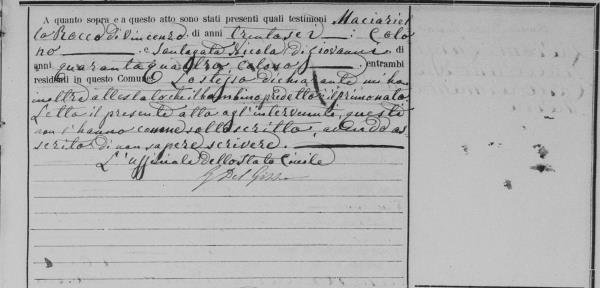 A quanto sopra e a questo atto sono stati presenti quali testimoni Maciariel
lo Rocco di Vincenzo di anni trentasei : Colo
no e Santagata Nicola di Giovanni di
anni quarantaquattro colono entrambi
residenti in questo Comune. Lo stesso dichiarante mi ha
inoltre attestato che il bambino predetto è il primo nato.
Letto il presente atto agl'intervenuti, questi
non l'hanno come sottoscritto, avendo as
serito di non sapere scrivere.
L'uffiziale dello Stato Civile
G Del